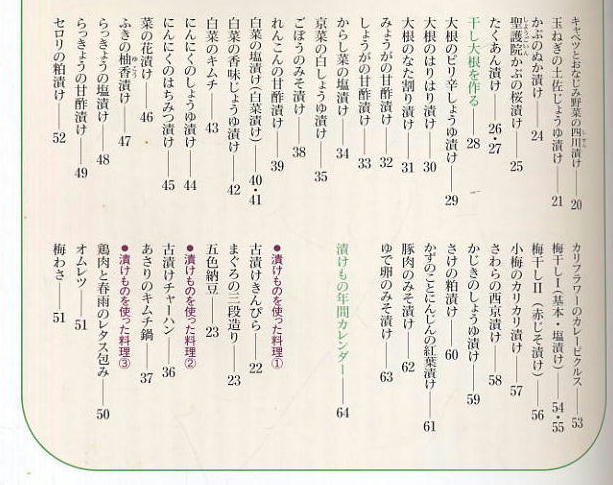 キャベツとおなじみ野菜の四川漬け——20
玉ねぎの土佐じょうゆ漬け——21
かぶのぬか漬け——24
聖護院かぶの桜漬け——25
たくあん漬け——26・27
干し大根を作る——28
大根のピリ辛しょうゆ漬け——29
大根のはりはり漬け——30
大根のなた割り漬け——31
みょうがの甘酢漬け——32
しょうがの甘酢漬け——33
からし菜の塩漬け——34
京菜の白しょうゆ漬け——35
ごぼうのみそ漬け——38
れんこんの甘酢漬け——39
白菜の塩漬け(白菜漬け)——40・41
白菜の香味じょうゆ漬け——42
白菜のキムチ——43
にんにくのしょうゆ漬け——44
にんにくのはちみつ漬け——45
菜の花漬け——46
ふきの柚香漬け——47
らっきょうの塩漬け——48
らっきょうの甘酢漬け——49
セロリの粕漬け——52
カリフラワーのカレーピクルス——53
梅干しⅠ(基本・塩漬け)——54・55
梅干しⅡ(赤じそ漬け)——56
小梅のカリカリ漬け——57
さわらの西京漬け——58
かじきのしょうゆ漬け——59
さけの粕漬け——60
かずのことにんじんの紅葉漬け——61
豚肉のみそ漬け——62
ゆで卵のみそ漬け——63
漬けもの年間カレンダー——64
●漬けものを使った料理①
古漬けきんぴら——22
まぐろの三段造り——23
五色納豆——23
●漬けものを使った料理②
古漬けチャーハン——36
あさりのキムチ鍋——37
●漬けものを使った料理③
鶏肉と春雨のレタス包み——50
オムレツ——51
梅わさ——51